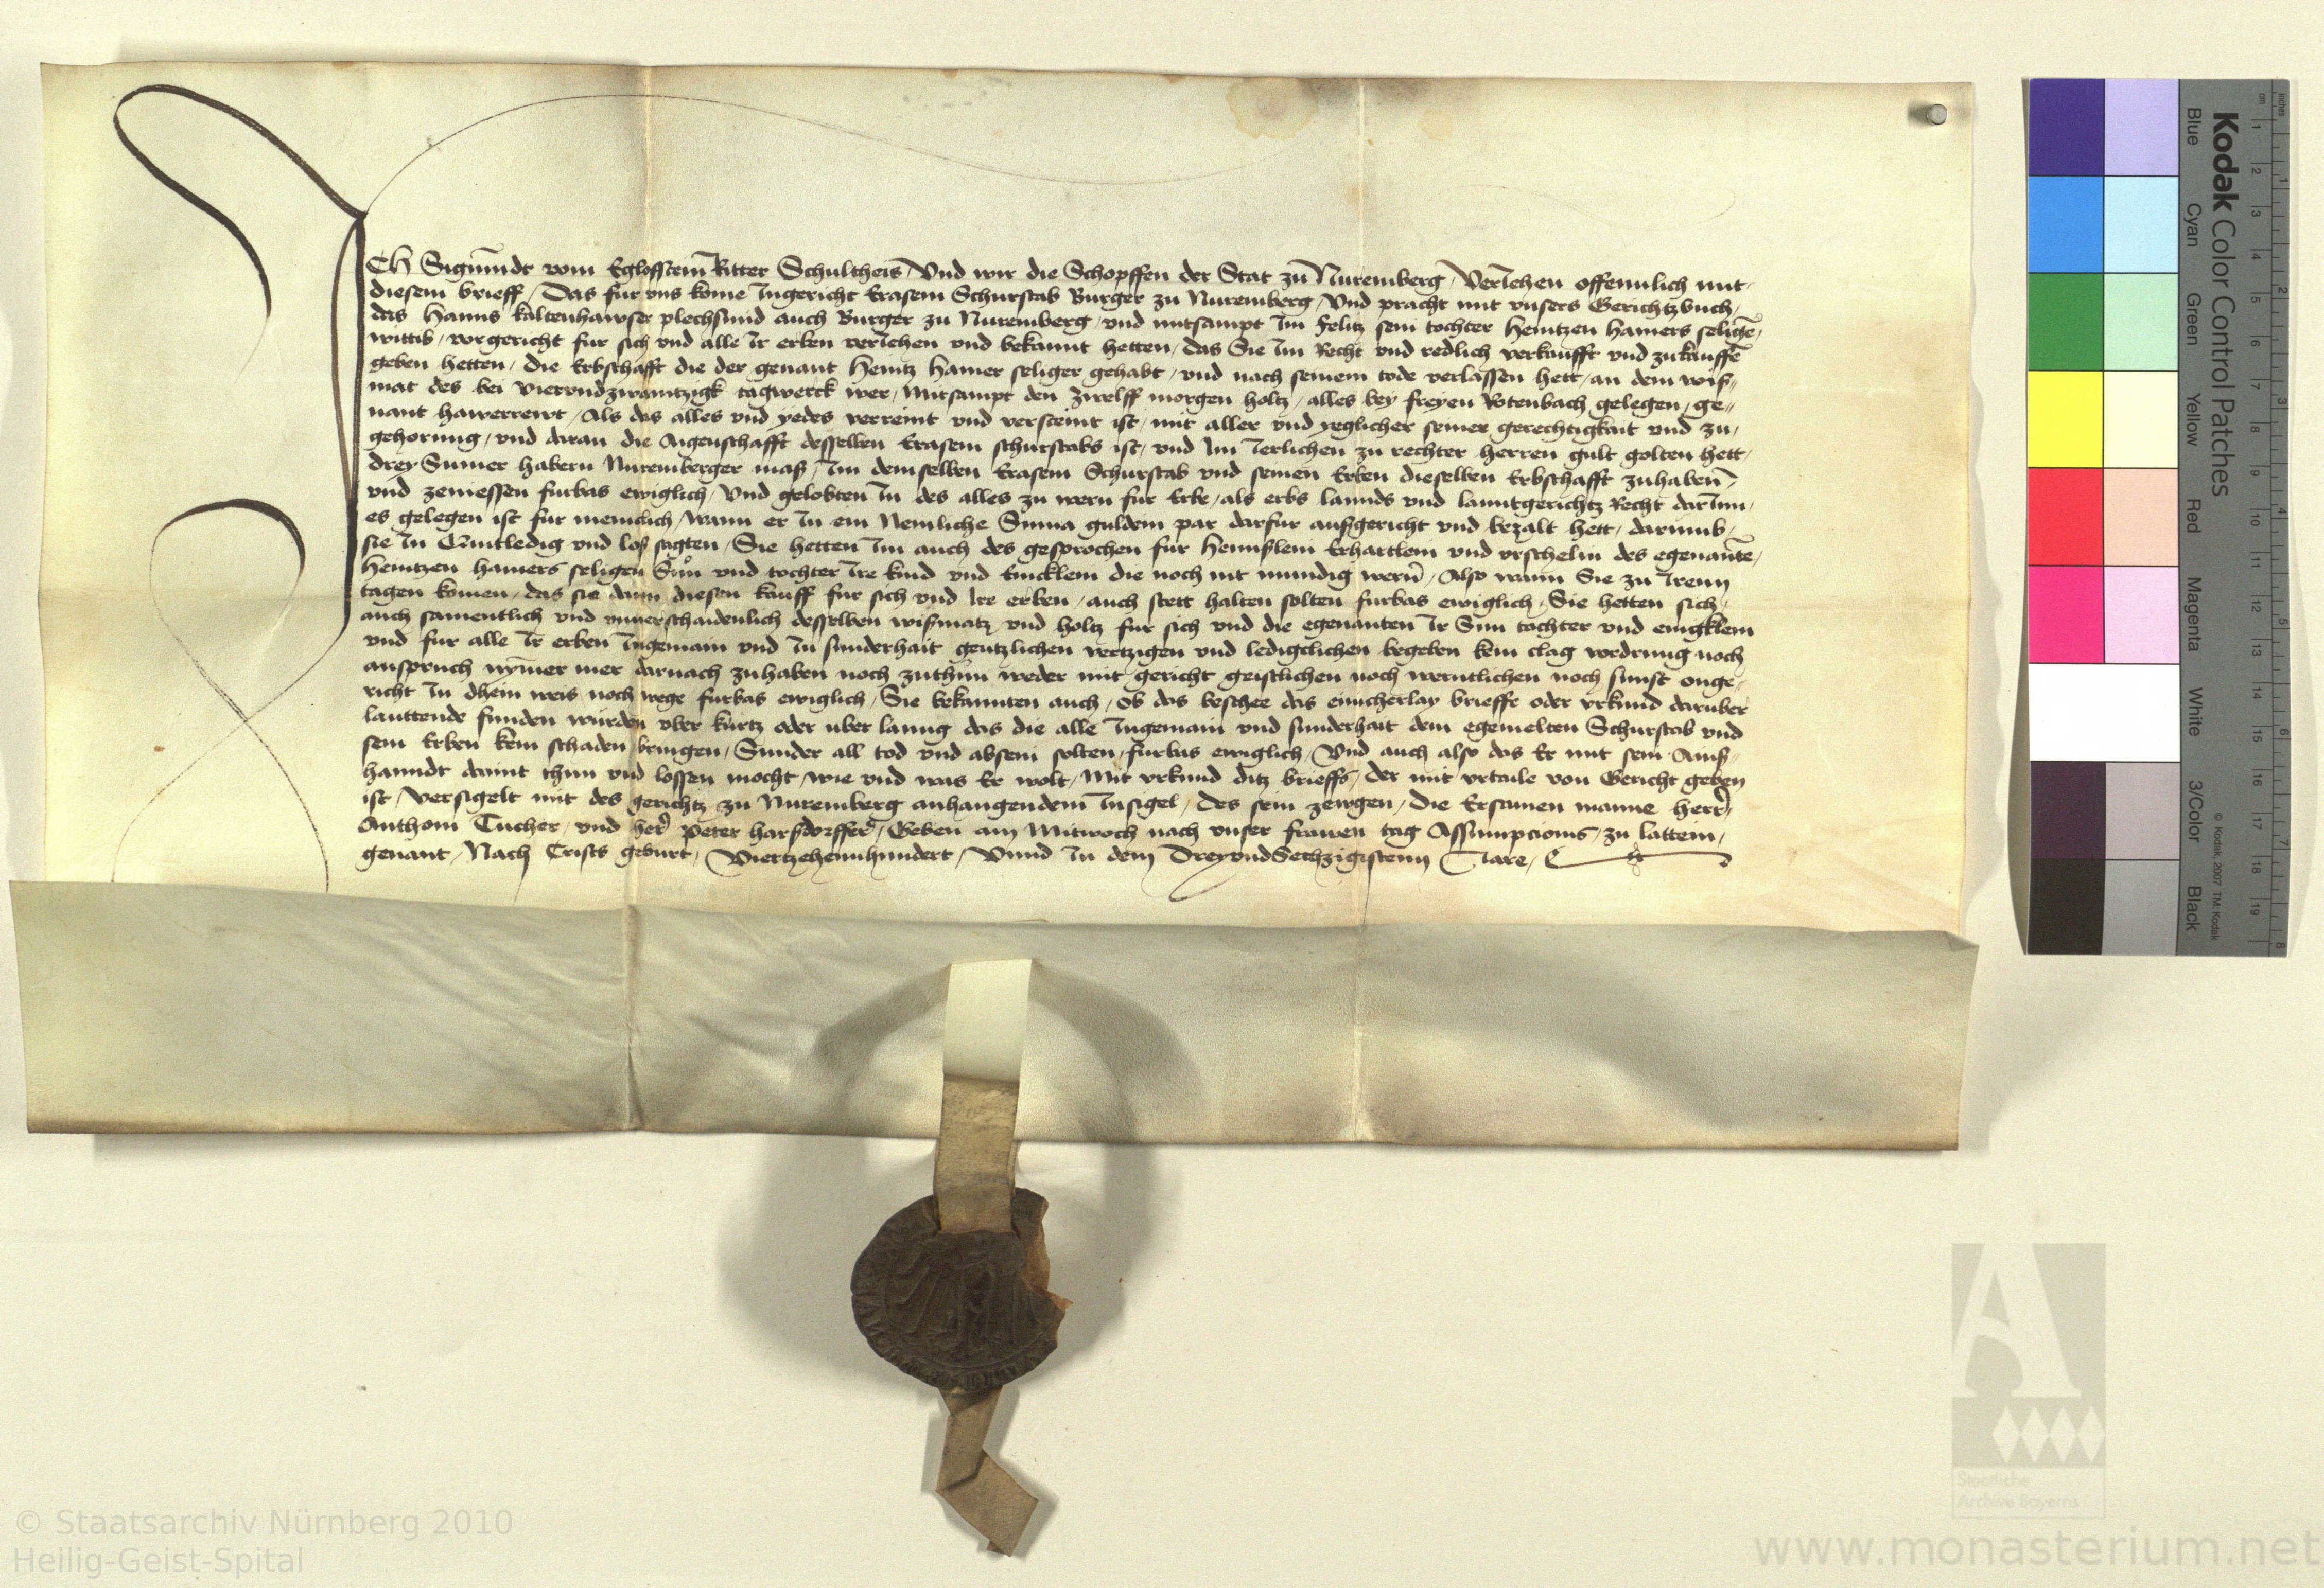 ICH Sigmundt vom Egloffstein Ritter Schultheis Vnd wir die Schopffen der Stat zu Nuremberg / Veriehen offennlich mit /
diesem brieff / Das fur vns kome Ingericht Erasem Schurstab Burger zu Nuremberg / Vnd pracht mit vnsers Gerichtzbuch /
das Hanns kaltenhawser plechsmid auch Burger zu Nuremberg / vnd mitsampt Im Felitz sein tochter Heintzen Hamers selige /
wittib / vorgericht fur sich vnd alle Ir erben veriehen vnd bekannt hetten / das Sie Im Recht vnd redlich verkaufft vnd zukauffe
geben hetten / die Erbschafft die der genant Heintz Hamer seliger gehabt / vnd nach seinem tode verlassen hett / an dem wiß //
mat des bei vierundzwaintzigk tagwerck wer / Mitsampt den zwelff morgen holtz / alles bey freyen Rotenbach gelegen / ge //
nant hawerrewt / Als das alles vnd yedes verreint vnd versteint ist / mit aller vnd yeglicher seiner gerechtigkait vnd zu /
gehorung / vnd daran die Aigenschafft desselben Erasem schurstabs ist / vnd Im Ierlichen zu rechter herren gult golten hett /
drey Sumer habern Nuremberger maß / Im demselben Erasem Schurstab vnd seinen Erben dieselben Erbschafft zuhaben /
vnd zeniessen furbas ewiglich / Vnd gelobten In des alles zu wern fur Erbe / als erbs lannds vnd lanntgerichtz Recht darInn /
es gelegen ist fur meniclich / wann er In ein Nemliche Suma guldein par darfur außgericht vnd bezalt hett / darumb /
sie In Quitledig vnd loß sagten / Sie hetten Im auch des gesprochen fur Hennßlein Erhartlein vnd vrschelin des egenante /
Heintzen hamers seligen Sun vnd tochter Ire kind vnd Eincklein die noch nit mundig wern / Also wann Sie zu Irenn
tagen komen / das sie dann diesen kauff fur sich vnd Ire erben / auch stett halten solten furbas ewiglich / Sie hetten sich /
auch samentlich vnd vnuerschaidenlich desselben wißmatz vnd holtz fur sich vnd die egenanten Ir Sun tochter vnd einigklein
vnd fur alle Ir erben Ingemain vnd In sunderhait gentzlichen vertzigen vnd lediglichen begeben kein clag vordrung noch
anspruch nymer mer darnach zuhaben noch zuthun weder mit gericht geistlichen noch werntlichen noch sunst onge /
richt In dhein weis noch wege furbas ewiglich / Sie bekannten auch / Ob das beschee das einicherlay brieffe oder vrkund daruber
lauttende funden wurden vber kurtz oder uber lanng das die alle Ingemain vnd sunderhait dem egemelten Schurstab vnd
sein Erben kein schaden bringen / Sunder all tod vnd absein solten / furbas ewiglich / Vnd auch also das Er mit sein Ains //
hanndt damit thun vnd lossen mocht / wie vnd was Er wolt / Mit vrkund ditz brieffs / der mit vrtaile von Gericht geben
ist / versigelt mit des gerichtz zu Nuremberg anhangendem Insigel / des sein zewgen / die Ersamen manne herr /
Anthoni Tucher / vnd her Peter harßdorffer / Geben am Mitwoch nach vnser frawen tag Assumpcionis / zu lattein /
genant / Nach Crists geburt / Viertzehennhundert / Vnnd In dem DreyvndSechzigistenn Iare /
Kodak Color Control Patches
Blue Cyan Green Yellow Red Magenta White 3/Color Black
© Kodak, 2007 TM: Kodak
inches 1 2 3 4 5 6 7 8
cm 1 2 3 4 5 6 7 8 9 10 11 12 13 14 15 16 17 18 19
Staatliche
Archive Bayerns
© Staatsarchiv Nürnberg 2010
Heilig-Geist-Spital
www.monasterium.net